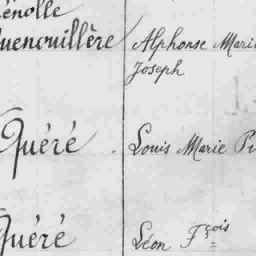 énolle
uenouillère Alphonse Marie
Joseph
Quéré Louis Marie
Quéré Léon Fçois